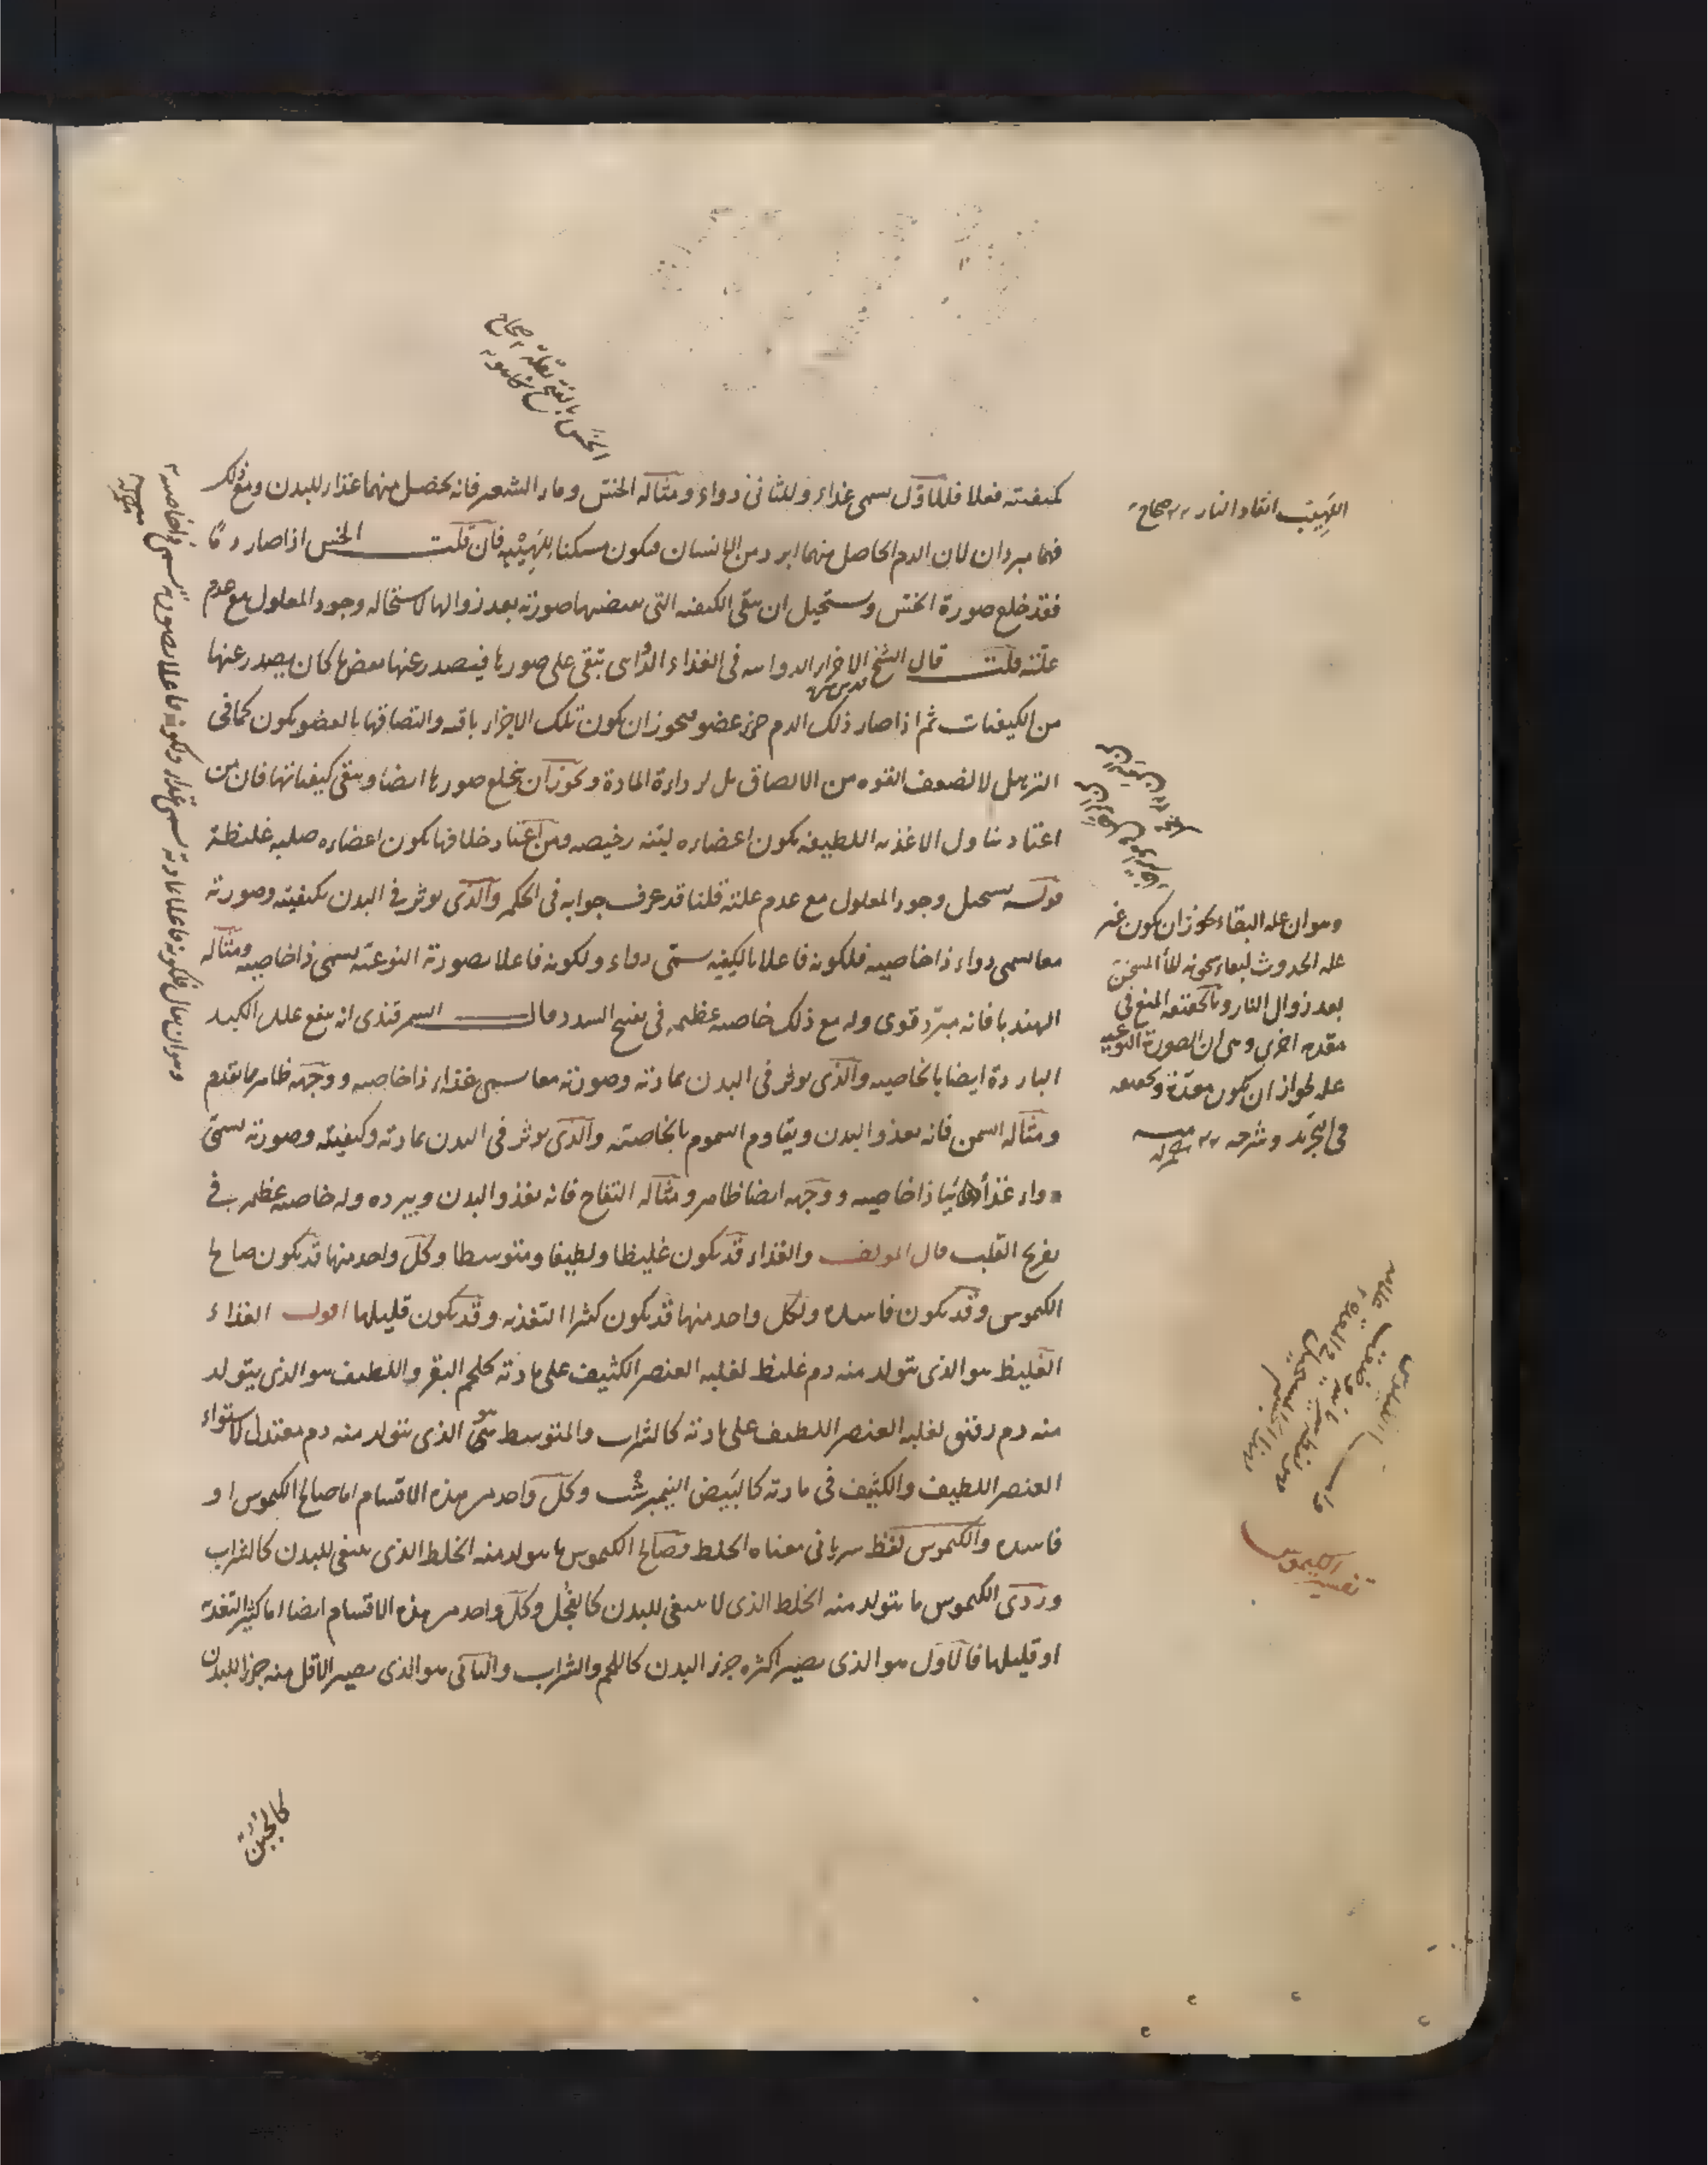 كيفيته فعلا فللاول يسمى غذاء وللثانى دواء ومثاله الخس وماء الشعير فانه يحصل منهما غذاء للبدن ومع ذلك
فهما مبردان لان الدم الحاصل منهما ابرد من الانسان فيكون مسكنا للهيبه فان قلت الخس اذا صار دمًا
فقد خلع صورة الخس ويستحيل ان يبقى الكيفيه التى يقتضيها صورته بعد زوالها لاستحاله وجود المعلول مع عدم
علته قلت قال الشيخ الاجزاء الدوائيه فى الغذاء الدوائى تبقى على صورها فيصدر عنها بعض ما كان يصدر عنها
من الكيفيات ثم اذا صار ذلك الدم جزء عضو فيجوز ان يكون تلك الاجزاء باقيه والتصاقها بالعضو يكون كما فى
الترهل لا لضعف القوه من الالصاق بل لرداءة المادة ويجوز ان يخلع صورها ايضا ويبقى كيفياتها فان من
اعتاد تناول الاغذيه اللطيفه يكون اعضاءه لينه رخيصه ومن اعتاد خلافها يكون اعضاءه صلبه غليظة
قوله يستحيل وجود المعلول مع عدم علته قلنا قد عرف جوابه فى الحكمه والذى يوثر فى البدن بكيفيته وصورته
معا يسمى دواء ذا خاصيه فلكونه فاعلا بالكيفيه يسمى دواء ولكونه فاعلا بصورته النوعيه يسمى ذا خاصيه ومثاله
الهندبا فانه مبرد قوى وله مع ذلك خاصيه عظيمه فى تفتيح السدد وقال السمرقندى انه ينفع علل الكبد
الباردة ايضا بالخاصيه والذى يوثر فى البدن بمادته وصورته معا يسمى غذاء ذا خاصيه ووجهه ظاهر مما تقدم
ومثاله السمن فانه يغذو البدن ويقاوم السموم بالخاصيته والذى يوثر فى البدن بمادته وكيفيته وصورته يسمى
دواء غذائيا ذا خاصيه ووجهه ايضا ظاهر ومثاله التفاح فانه يغذو البدن ويبرده وله خاصيه عظيمه فى
تفريح القلب قال المولف والغذاء قد يكون غليظا ولطيفا ومتوسطا وكل واحد منها قد يكون صالح
الكيموس وقد يكون فاسده ولكل واحد منها قد يكون كثير التغذيه وقد يكون قليلها اقول الغذاء
الغليظ هو الذى يتولد منه دم غليظ لغلبه العنصر الكثيف على مادته كلحم البقر واللطيف هو الذى يتولد
منه دم رقيق لغلبه العنصر اللطيف على مادته كالشراب والمتوسط هو الذى يتولد منه دم معتدل لاستواء
العنصر اللطيف والكثيف فى مادته كالبيض النيمبرشت وكل واحد من هذه الاقسام اما صالح الكيموس او
فاسده والكيموس لفظ سريانى معناه الخلط وصالح الكيموس ما يتولد منه الخلط الذى ينبغى للبدن كالشراب
وردى الكيموس ما يتولد منه الخلط الذى لا ينبغى للبدن كالفجل وكل واحد من هذه الاقسام ايضا اما كثير التغذيه
او قليلها فالاول هو الذى يصير اكثره جزء البدن كاللحم والشراب والثانى هو الذى يصير الاقل منه جزء البدن
كالجبن
اللهيب اتقاد النار صحاح
وهو ان عله البقاء يجوز ان يكون غير
عله الحدوث لبقاء سخونه الماء المسخن
بعد زوال النار
مقدمه اخرى وهى ان الصورة النوعيه
عله لجواز ان يكون معدّة وتحقيقه
فى التجريد وشرحه
وهو ان يقال فلكونه فاعلا بمادته يسمى غذاء ولكونه فاعلا بصورته يسمى ذا خاصيه
تفسير الكيموس